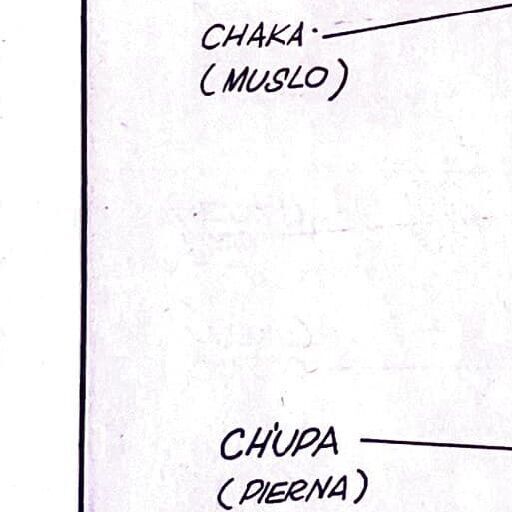 CHAKA
(MUSLO)
CH'UPA
(PIERNA)